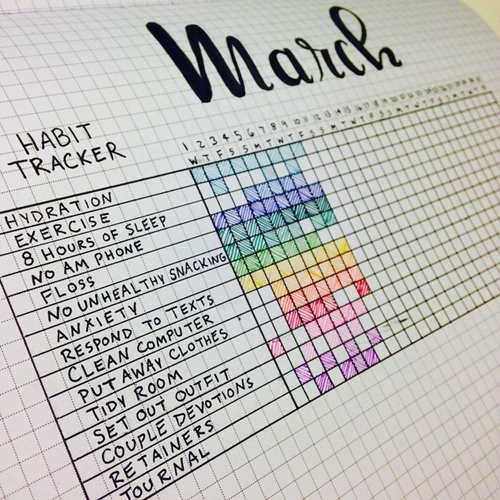 March
HABIT
TRACKER
1 2 3 4 5 6 7 8 9 10 11 12 13
W T F S S M T W T F S S M T W T F S S M T W T F S
HYDRATION
EXERCISE
8 HOURS OF SLEEP
NO AM PHONE
FLOSS
NO UNHEALTHY SNACKING
ANXIETY
RESPOND TO TEXTS
CLEAN COMPUTER
PUT AWAY CLOTHES
TIDY ROOM
SET OUT OUTFIT
COUPLE DEVOTIONS
RETAINERS
JOURNAL